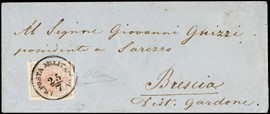 Al Signore Giovanni Guizzi
presidente a Sarezzo
Brescia
Dist. Gardone.
POSTA MILITARE